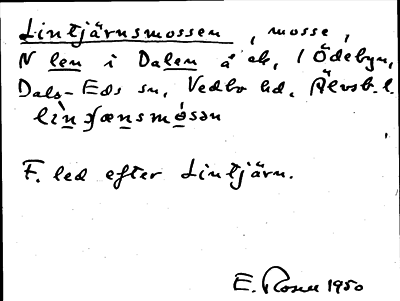 Lintjärnsmossen, mosse,
N len i Dalen å ek, i Ödebyn,
Dals-Eds sn, Vedbo hd, Älvsb. l.
F. led efter Lintjärn.
E. Rosell 1950